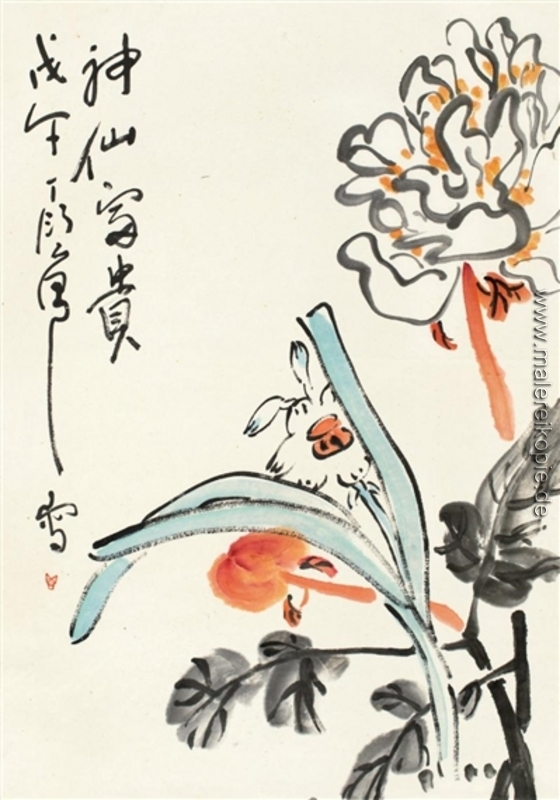 神仙富貴
戊午丁衍庸
寫
www.malereikopie.de